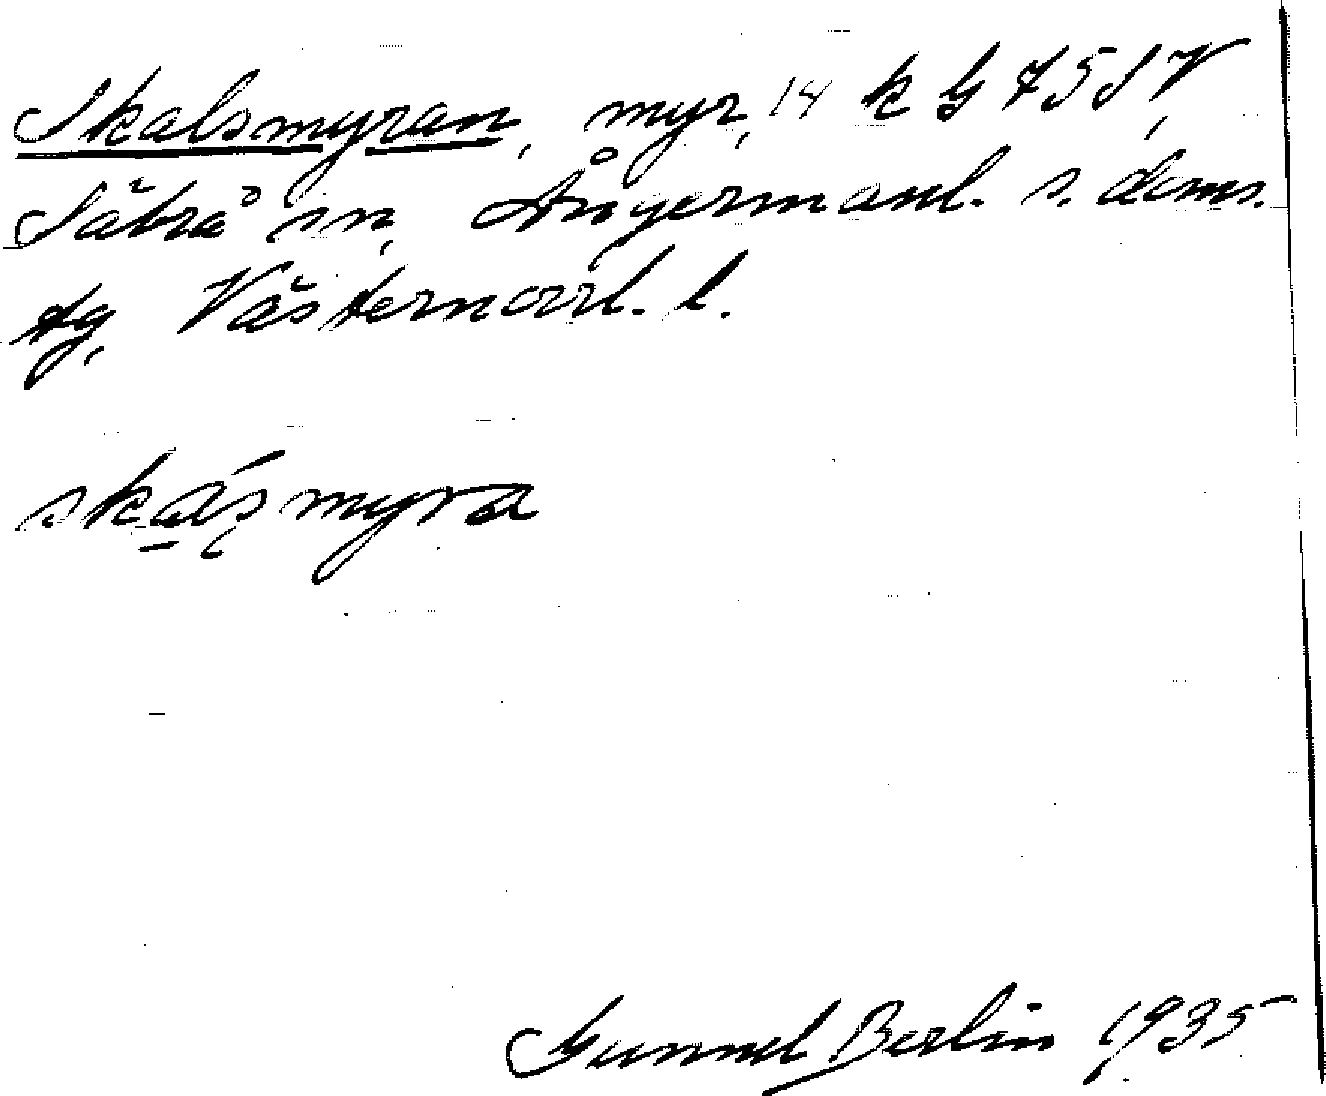 Skalsmyran, myr, 14 k G 75 SV,
Säbrå sn, Ångermanl. s. doms.
tg, Västernorrl. l.
skásmyra
Gunnel Berlin 1935